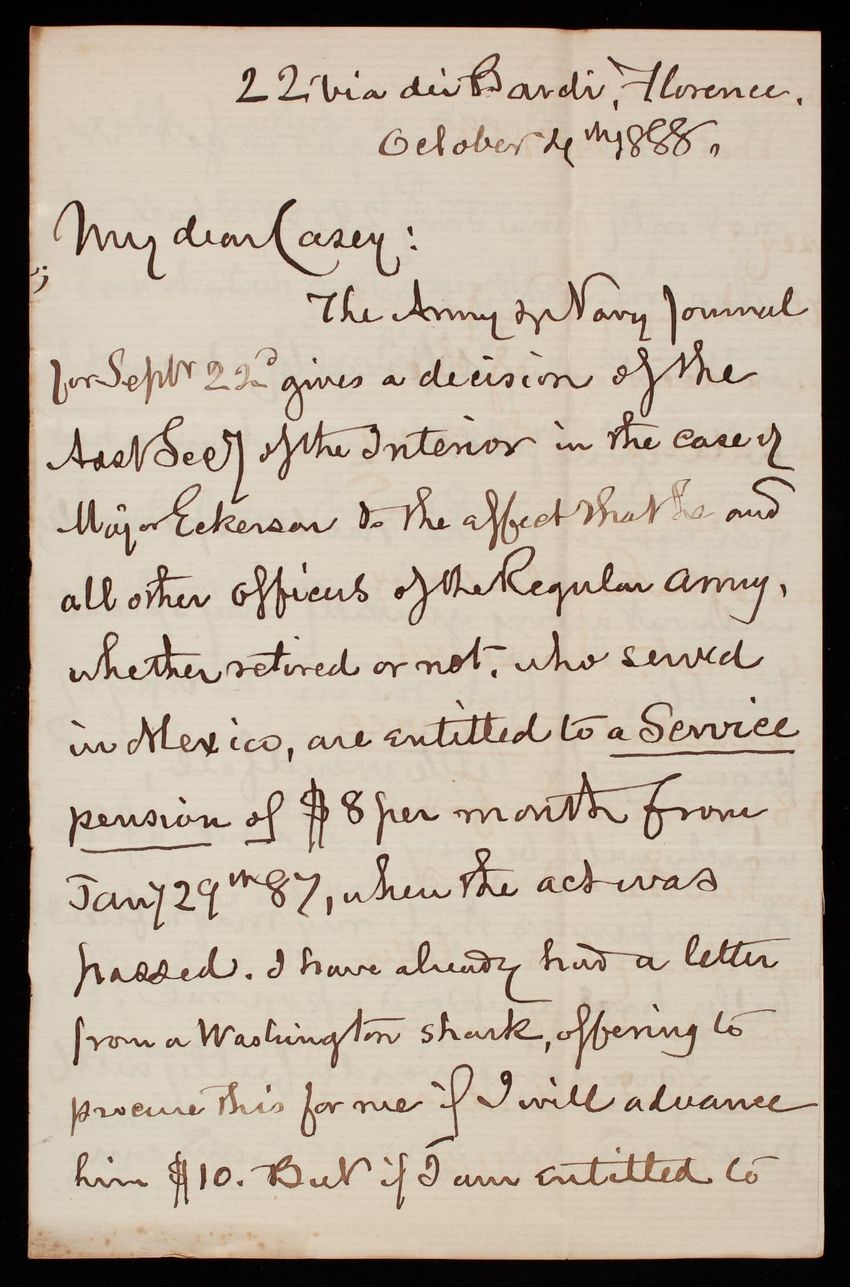 22 via dei Bardi, Florence.
October 4th 1888.
My dear Casey:
The Army & Navy Journal
for Septr 22d gives a decision of the
Asst Secy of the Interior in the case of
Major Eckerson to the effect that he and
all other officers of the Regular Army,
whether retired or not, who served
in Mexico, are entitled to a Service
pension of $8 per month from
Jany 29th 87, when the act was
passed. I have already had a letter
from a Washington shark, offering to
procure this for me if I will advance
him $10. But if I am entitled to